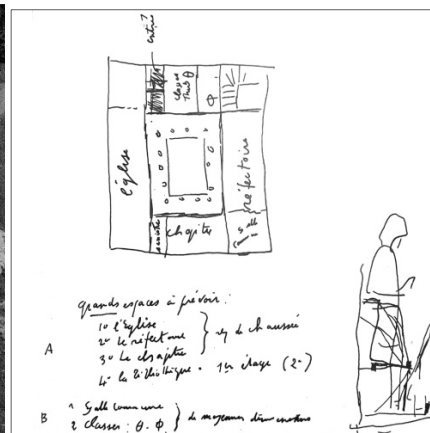 entrée ?
classes
θ
φ
église
réfectoire
chapitre
salle
grands espaces à prévoir :
A
1o l'Eglise
2o Le réfectoire
3o Le chapitre
rez de chaussée
4o la Bibliothèque . 1er étage (2o)
B
1 Salle commune
2 classes : θ . φ
de moyennes dimensions